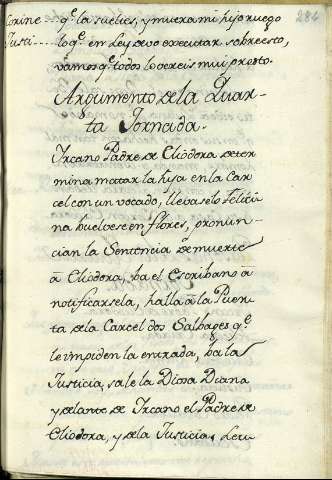 284
Corine - q.e la sueltes, y muera mi hijo ruego
Justi - - - lo q.e en Ley devo executar sobre esto,
vamos q.e todo lo vereis mui presto.
Argumento de la Quar-
ta Jornada.
Ircano Padre de Eliodora deter
mina matar la hija en la Car
cel con un vocado, llevaselo Felici
na buelvese en flores, pronun-
cian la Sentencia de muerte
â Eliodora, ba el Escribano â
notificarsela, halla â la Puer
ta de la Carcel dos Salbages q.e
le impiden la entrada, ba la
Justicia, sale la Diosa Diana
y delante de Ircano el Padre de
Eliodora, y de la Justicia,